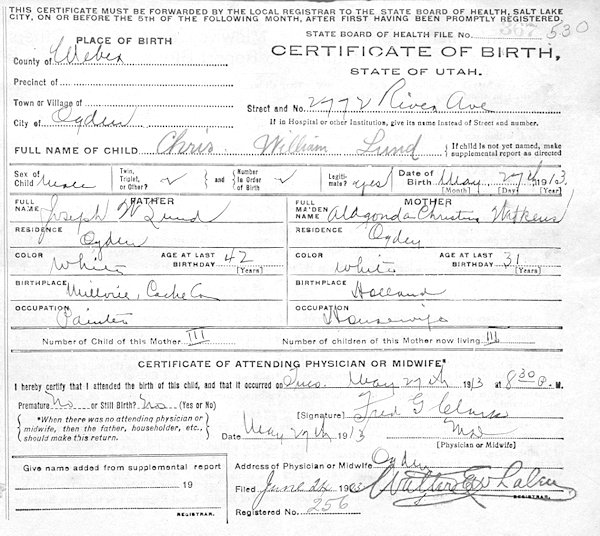 THIS CERTIFICATE MUST BE FORWARDED BY THE LOCAL REGISTRAR TO THE STATE BOARD OF HEALTH, SALT LAKE
CITY, ON OR BEFORE THE 5TH OF THE FOLLOWING MONTH, AFTER FIRST HAVING BEEN PROMPTLY REGISTERED.
STATE BOARD OF HEALTH FILE No. 367 530
PLACE OF BIRTH
County of Weber
CERTIFICATE OF BIRTH,
STATE OF UTAH.
Precinct of
Town or Village of
Street and No. 2772 River Ave
City of Ogden
If in Hospital or other Institution, give its name instead of Street and number.
FULL NAME OF CHILD Chris William Lund { If child is not yet named, make supplemental report as directed
Sex of Child Male Twin, Triplet, or Other? and Number In Order of Birth Legitimate? yes Date of Birth May 27th 1913
(Month) (Day) (Year)
FULL NAME FATHER Joseph W Lund
FULL MAIDEN NAME MOTHER Aldgonda Christina Witkens
RESIDENCE Ogden
RESIDENCE Ogden
COLOR White AGE AT LAST BIRTHDAY 42 (Years)
COLOR White AGE AT LAST BIRTHDAY 31 (Years)
BIRTHPLACE Millville, Cache Co
BIRTHPLACE Holland
OCCUPATION Painter
OCCUPATION Housewife
Number of Child of this Mother III Number of children of this Mother now living III
CERTIFICATE OF ATTENDING PHYSICIAN OR MIDWIFE*
I hereby certify that I attended the birth of this child, and that it occurred on Tues. May 27th 1913 at 8 30 P. M.
Premature No or Still Birth? No (Yes or No)
*When there was no attending physician or midwife, then the father, householder, etc., should make this return.
[Signature] Fred G Clark
Date May 27th 1913 MD
[Physician or Midwife]
Give name added from supplemental report
19
REGISTRAR.
Address of Physician or Midwife Ogden
Filed June 24 1913 Walter E Whalen
REGISTRAR.
Registered No. 256